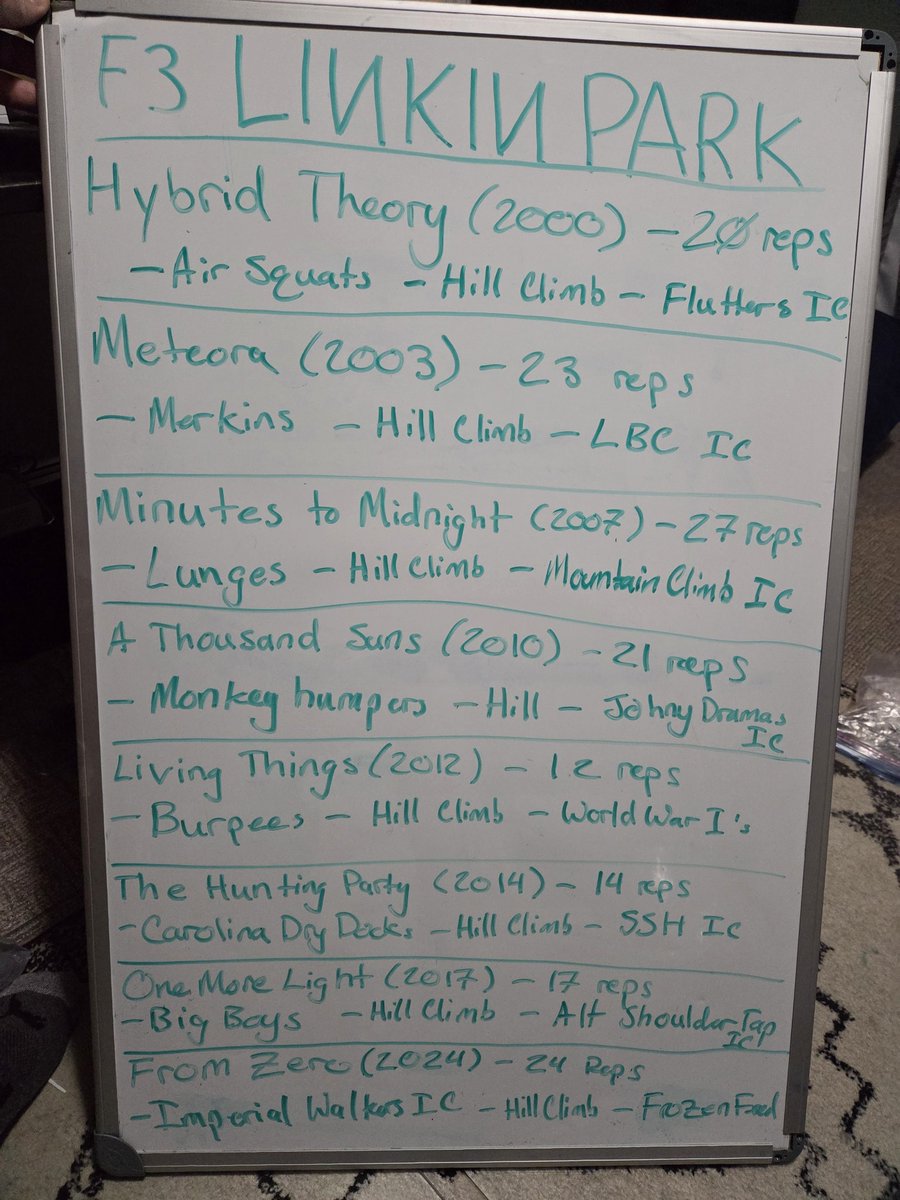 F3 LINKIN PARK
Hybrid Theory (2000) - 20 reps
- Air Squats - Hill Climb - Flutters IC
Meteora (2003) - 23 reps
- Merkins - Hill Climb - LBC IC
Minutes to Midnight (2007) - 27 reps
- Lunges - Hill Climb - Mountain Climb IC
A Thousand Suns (2010) - 21 reps
- Monkey humpers - Hill - Johny Dramas
IC
Living Things (2012) - 12 reps
- Burpees - Hill Climb - World War I's
The Hunting Party (2014) - 14 reps
- Carolina Dry Docks - Hill Climb - SSH IC
One More Light (2017) - 17 reps
- Big Boys - Hill Climb - Alt Shoulder Tap
IC
From Zero (2024) - 24 Reps
- Imperial Walkers IC - Hill Climb - Frozen